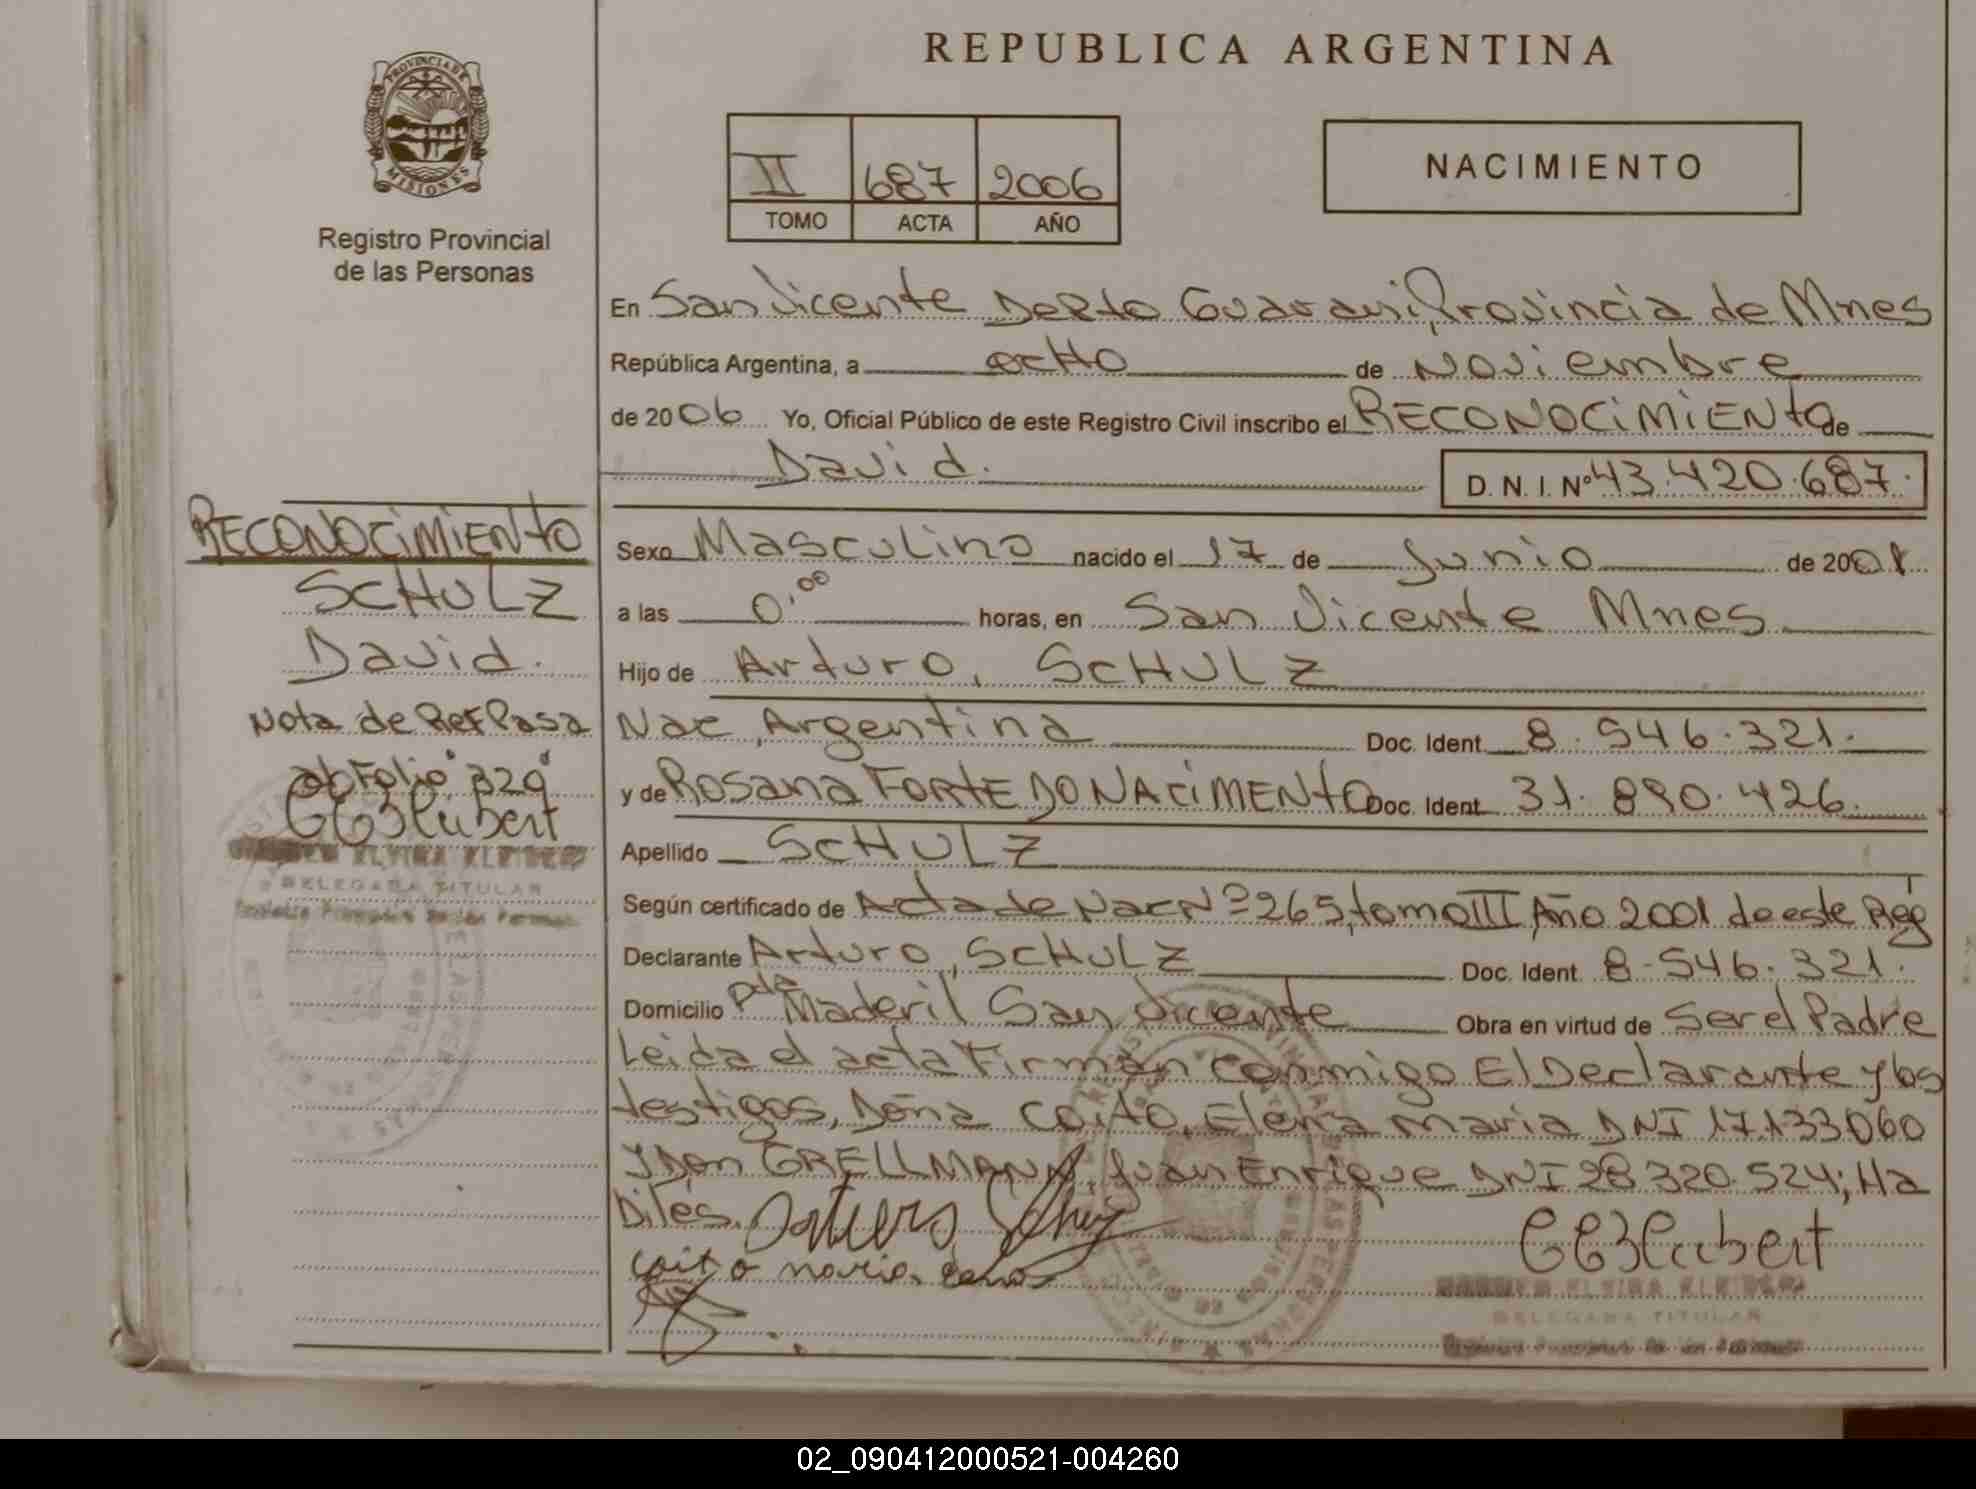 REPUBLICA ARGENTINA
PROVINCIA DE
MISIONES
Registro Provincial
de las Personas
II 687 2006
TOMO ACTA AÑO
NACIMIENTO
En San Vicente Depto Guarani, Provincia de Mnes
República Argentina, a ocHo de Noviembre
de 2006 Yo, Oficial Público de este Registro Civil inscribo el RECONOCiMiENto de
David. D. N. I. Nº 43.420.687.
Sexo Masculino nacido el 17 de Junio de 2001
a las 0,00 horas, en San Vicente Mnes
Hijo de Arturo, SCHULZ
Nac. Argentina Doc. Ident. 8.546.321.
y de Rosana FORTE DO NACiMENto Doc. Ident. 31.890.426.
Apellido SCHULZ
Según certificado de Acta de Nac Nº 265, tomo III, Año 2001 de este Reg
Declarante Arturo, SCHULZ Doc. Ident. 8.546.321.
Domicilio pje Maderil San Vicente Obra en virtud de Ser el Padre
Leida el acta Firman conmigo El Declarante y los
testigos, Doña Coito, Elena Maria DNI 17.133060
y Don GRELLMANN, Juan Enrique DNI 28.320.524;
RECONOCiMiENto
SCHULZ
David.
Nota de Ref Pasa
al Folio "329"
ELVIRA
DELEGADA TITULAR
DELEGADA TITULAR
02_090412000521-004260